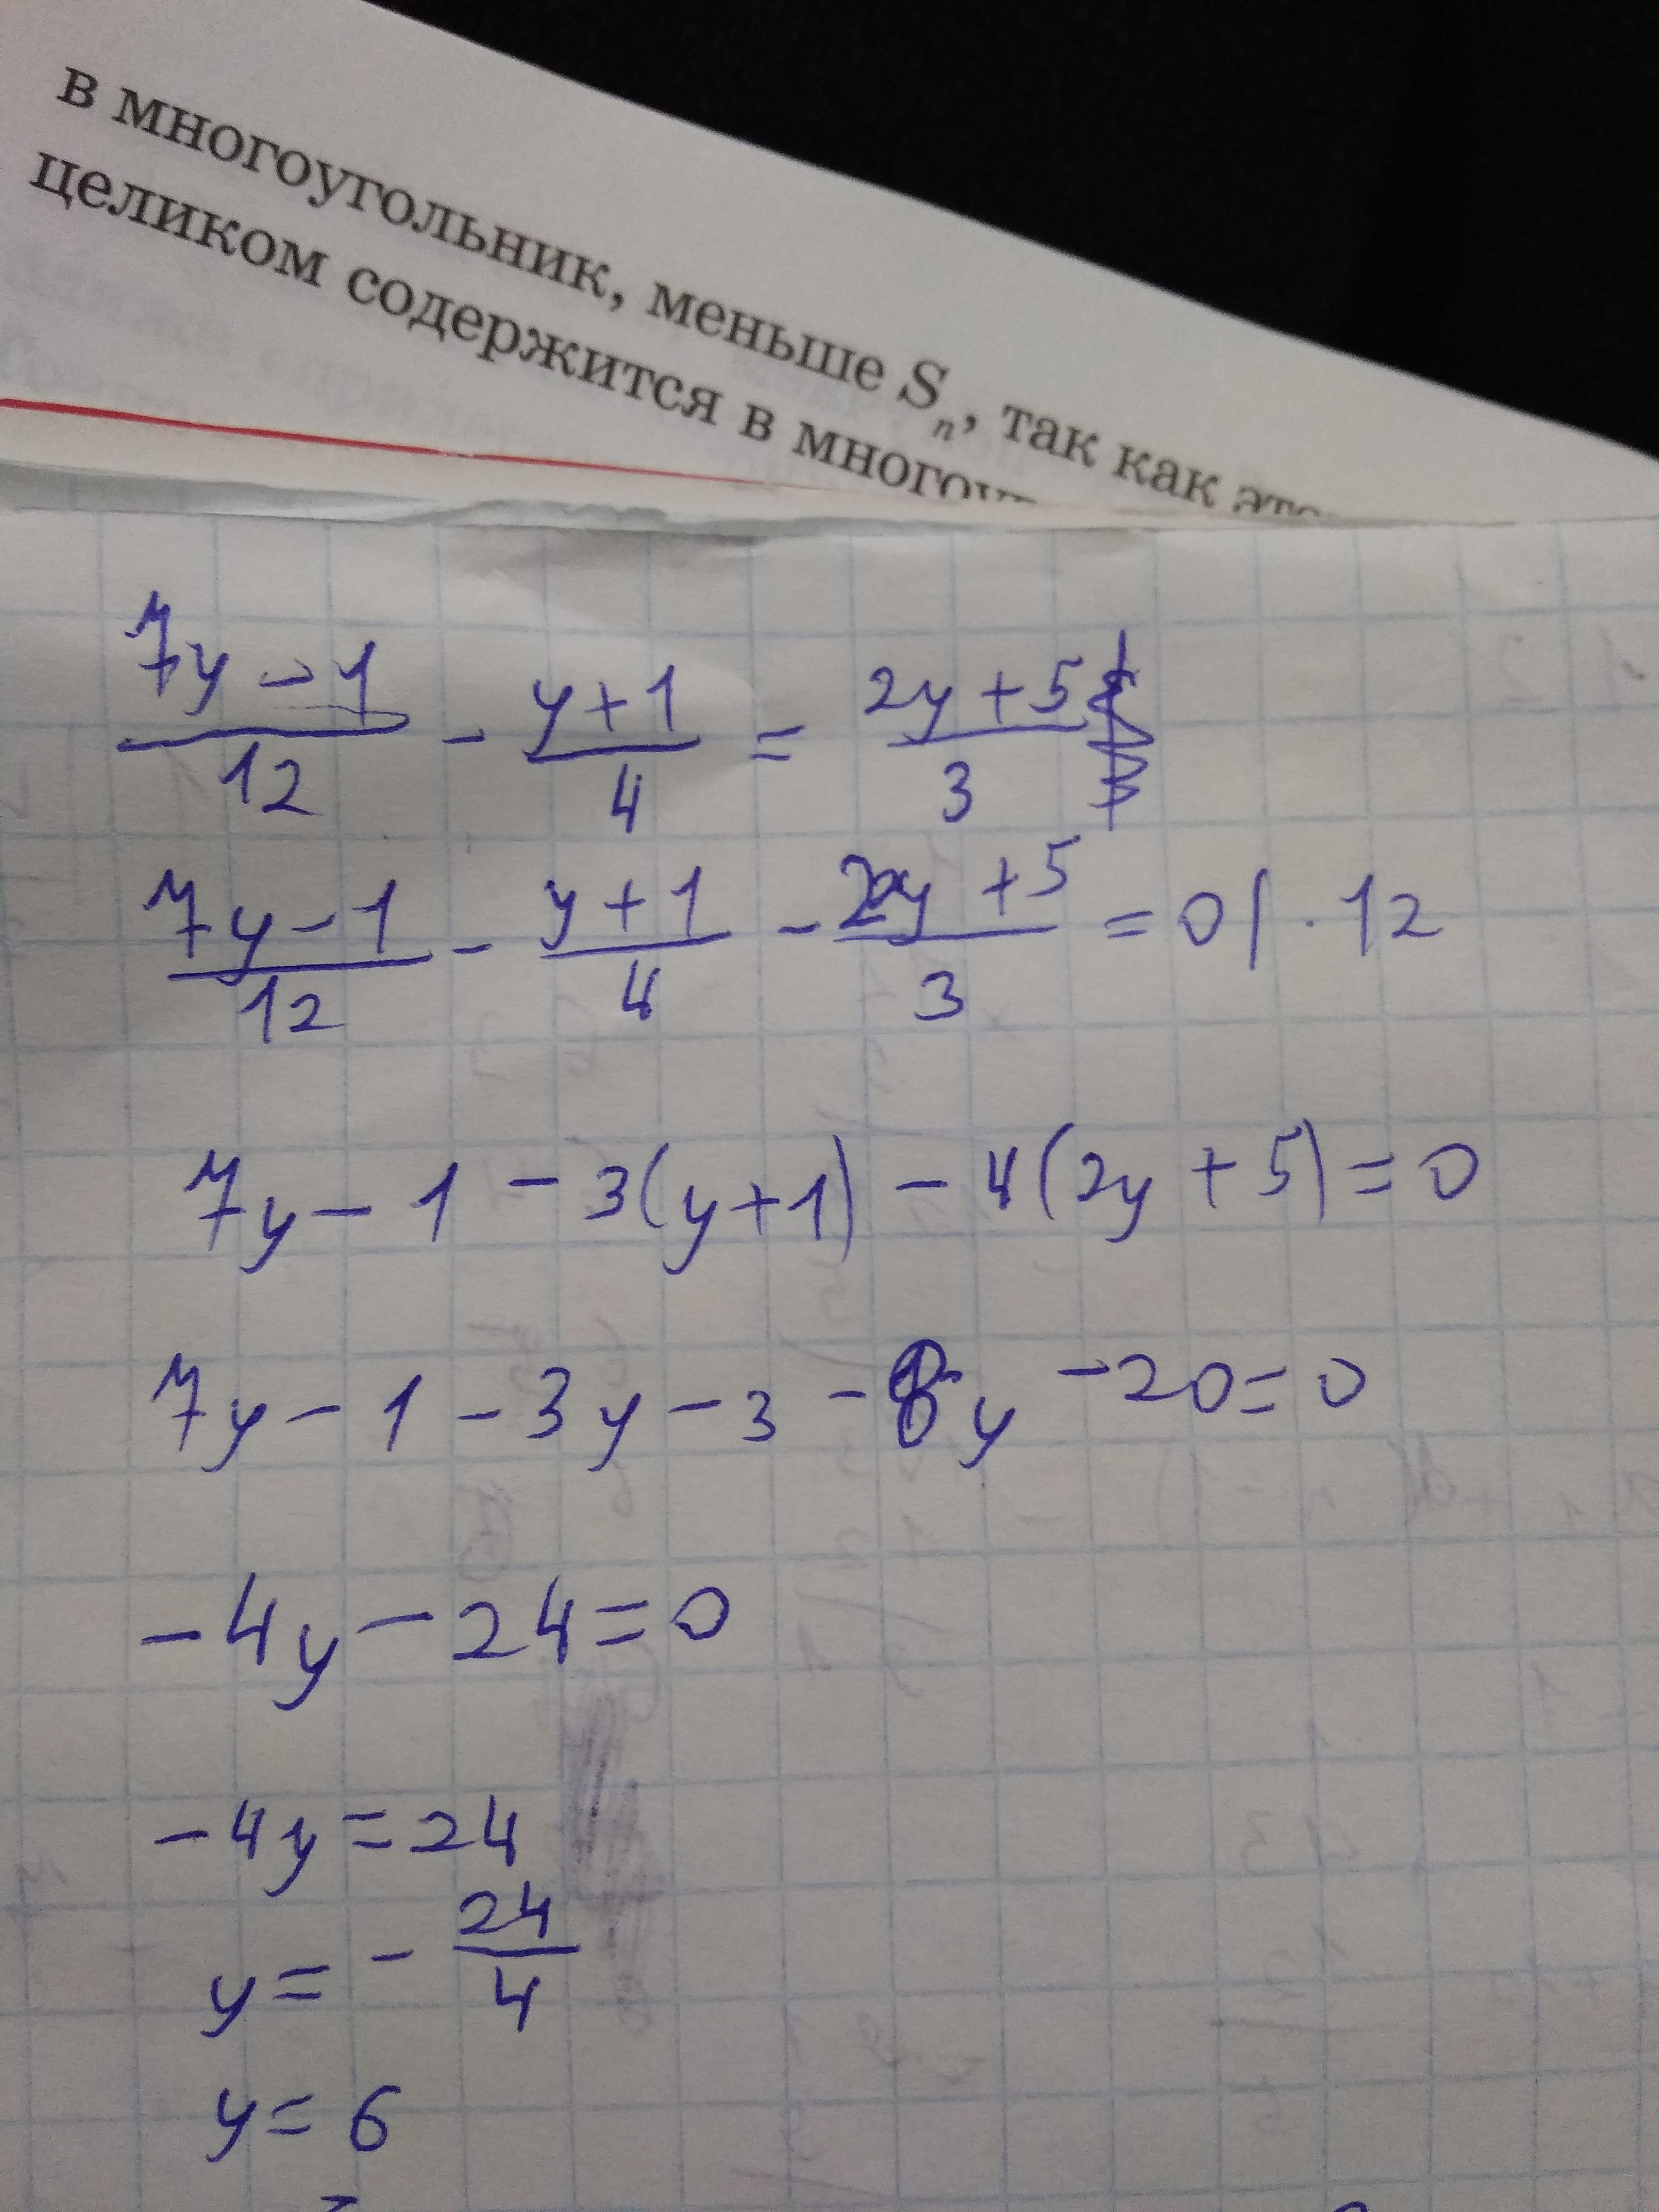 в многоугольник, меньше Sₙ, так как
целиком содержится в
(7y - 1)/12 - (y + 1)/4 = (2y + 5)/3
(7y - 1)/12 - (y + 1)/4 - (2y + 5)/3 = 0 | · 12
7y - 1 - 3(y + 1) - 4(2y + 5) = 0
7y - 1 - 3y - 3 - 8y - 20 = 0
-4y - 24 = 0
-4y = 24
y = - 24/4
y = 6